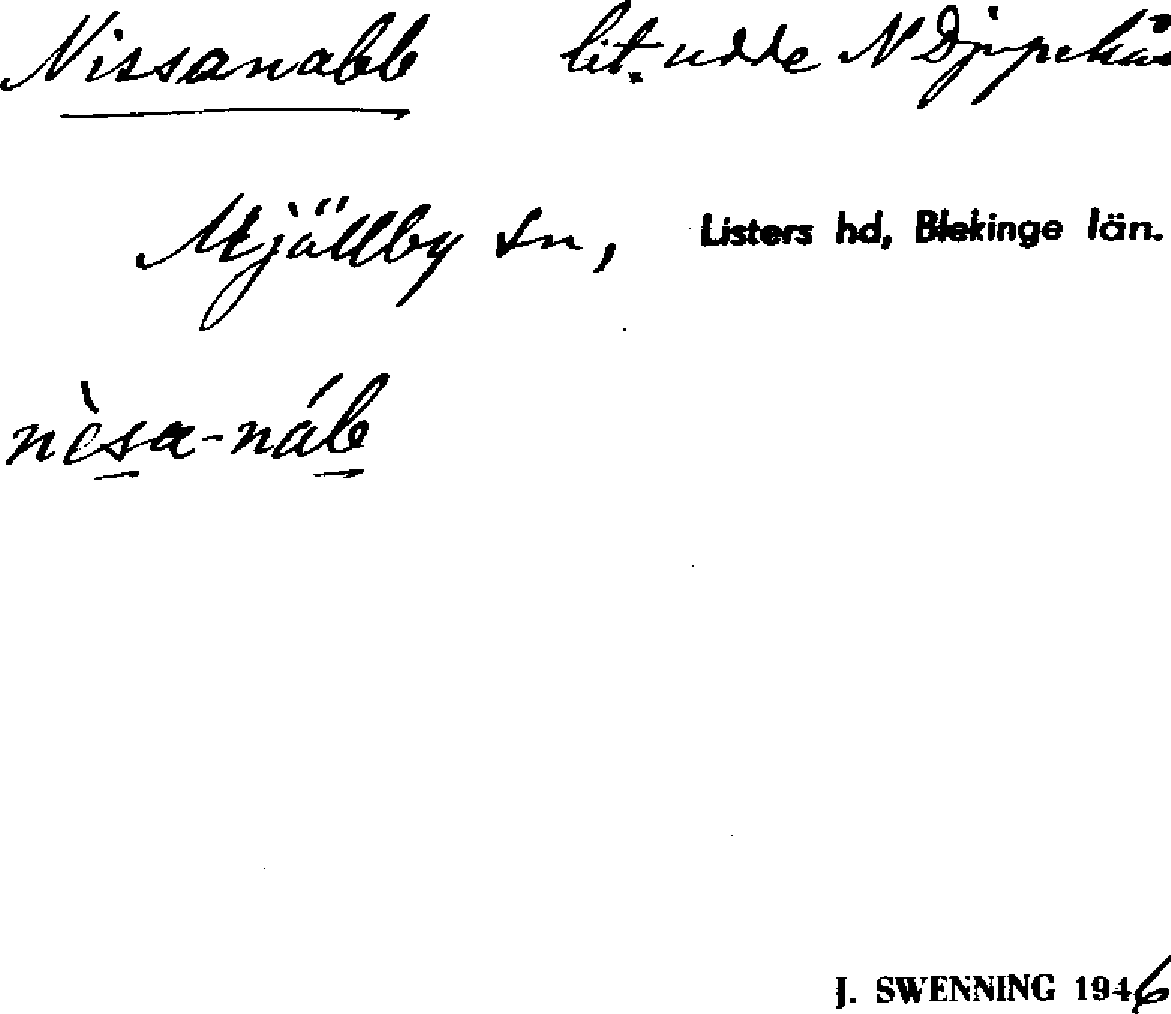 Nissanabb lit. udde N Djupekås
Mjällby sn, Listers hd, Blekinge län.
nèsa-náb
J. SWENNING 1946